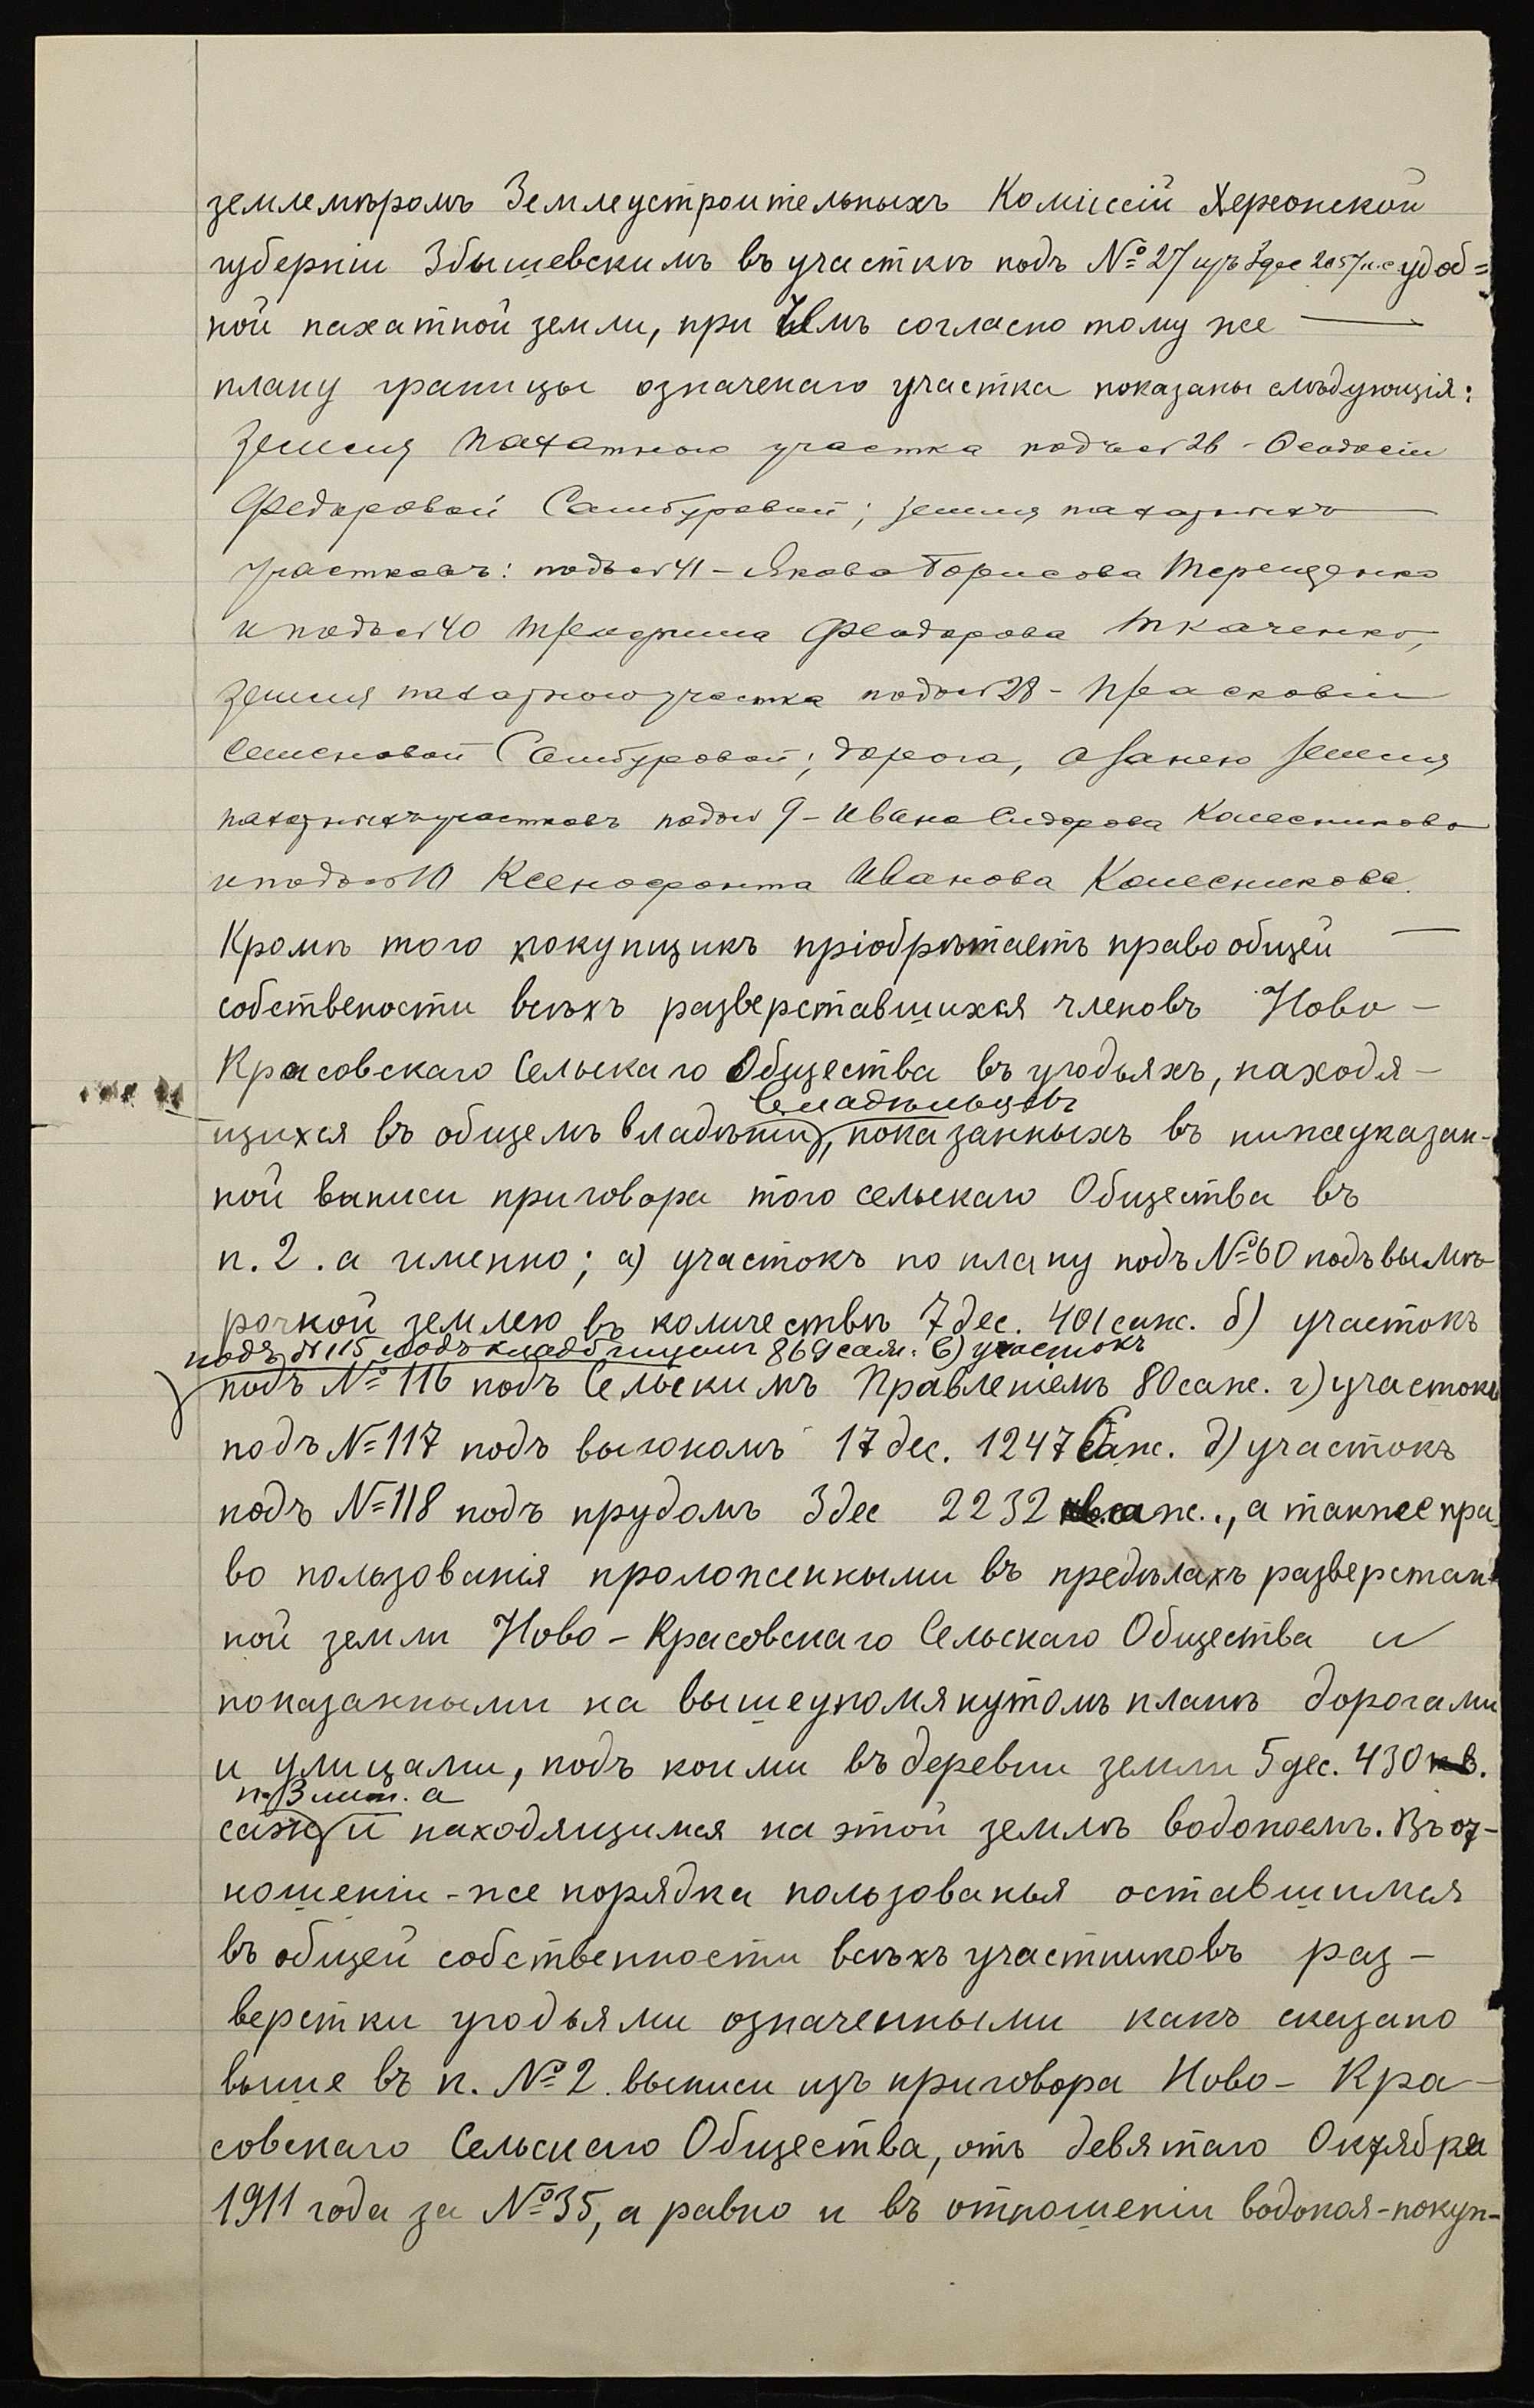 землемѣромъ Землеустроительныхъ Комиссій Херсонской
губерніи Збышевскимъ въ участкѣ подъ № 27 изъ дес 2057 к.с удоб=
ной пахатной земли, при чемъ согласно тому же —
плану границы означенаго участка показаны слѣдующія:
Земля пахатного участка подъ № 26 - Феодосіи
Федоровой Самбуровой; земля пахатныхъ
участковъ: подъ № 41 - Якова Борисова Терещенко
и подъ № 40 Феодорова Ткаченко,
земля пахатного участка подъ № 28 - Прасковіи
Семеновой Самбуровой; дорога, а за нею земля
пахатныхъ участковъ подъ № 9 - Ивана Сидорова Колесникова
и подъ № 10 Ксенофонта Иванова Колесникова.
Кромѣ того покупщикъ пріобрѣтаетъ право общей —
собствености всѣхъ разверставшихся членовъ Ново -
Красовскаго Сельскаго Общества въ угодьяхъ, находя -
совладѣльцовъ
щихся въ общемъ владѣніи, показанныхъ въ нижеуказан-
ной выписи приговора того сельскаго Общества въ
п. 2. а именно; а) участокъ по плану подъ № 60 подъ вымѣ-
рочкой землею въ количествѣ 7 дес. 401 саж. б) участокъ
подъ № 115 подъ кладбищемъ 869 саж. в) участокъ
подъ № 116 подъ Сельскимъ Правленіемъ 80 саж. г) участокъ
подъ № 117 подъ выгономъ 17 дес. 1247 Саж. д) участокъ
подъ № 118 подъ прудомъ 3 дес 2232 саж., а также пра
во пользованія проложенными въ предѣлахъ разверстан-
ной земли Ново - Красовскаго Сельскаго Общества и
показанными на вышеупомянутомъ планѣ дорогами
и улицами, подъ коими въ деревни земли 5 дес. 430 кв.
п. 3 лит. а
саж и находящимся на этой землѣ водопоемъ. Въ от-
ношеніи - же порядка пользованья оставшимся
въ общей собственности всѣхъ участниковъ раз -
верстки угодьями означенными какъ сказано
выше въ п. № 2. выписи изъ приговора Ново - Кра -
совскаго Сельскаго Общества, отъ девятаго Октября
1911 года за № 35, а равно и въ отношеніи водопоя - покуп-